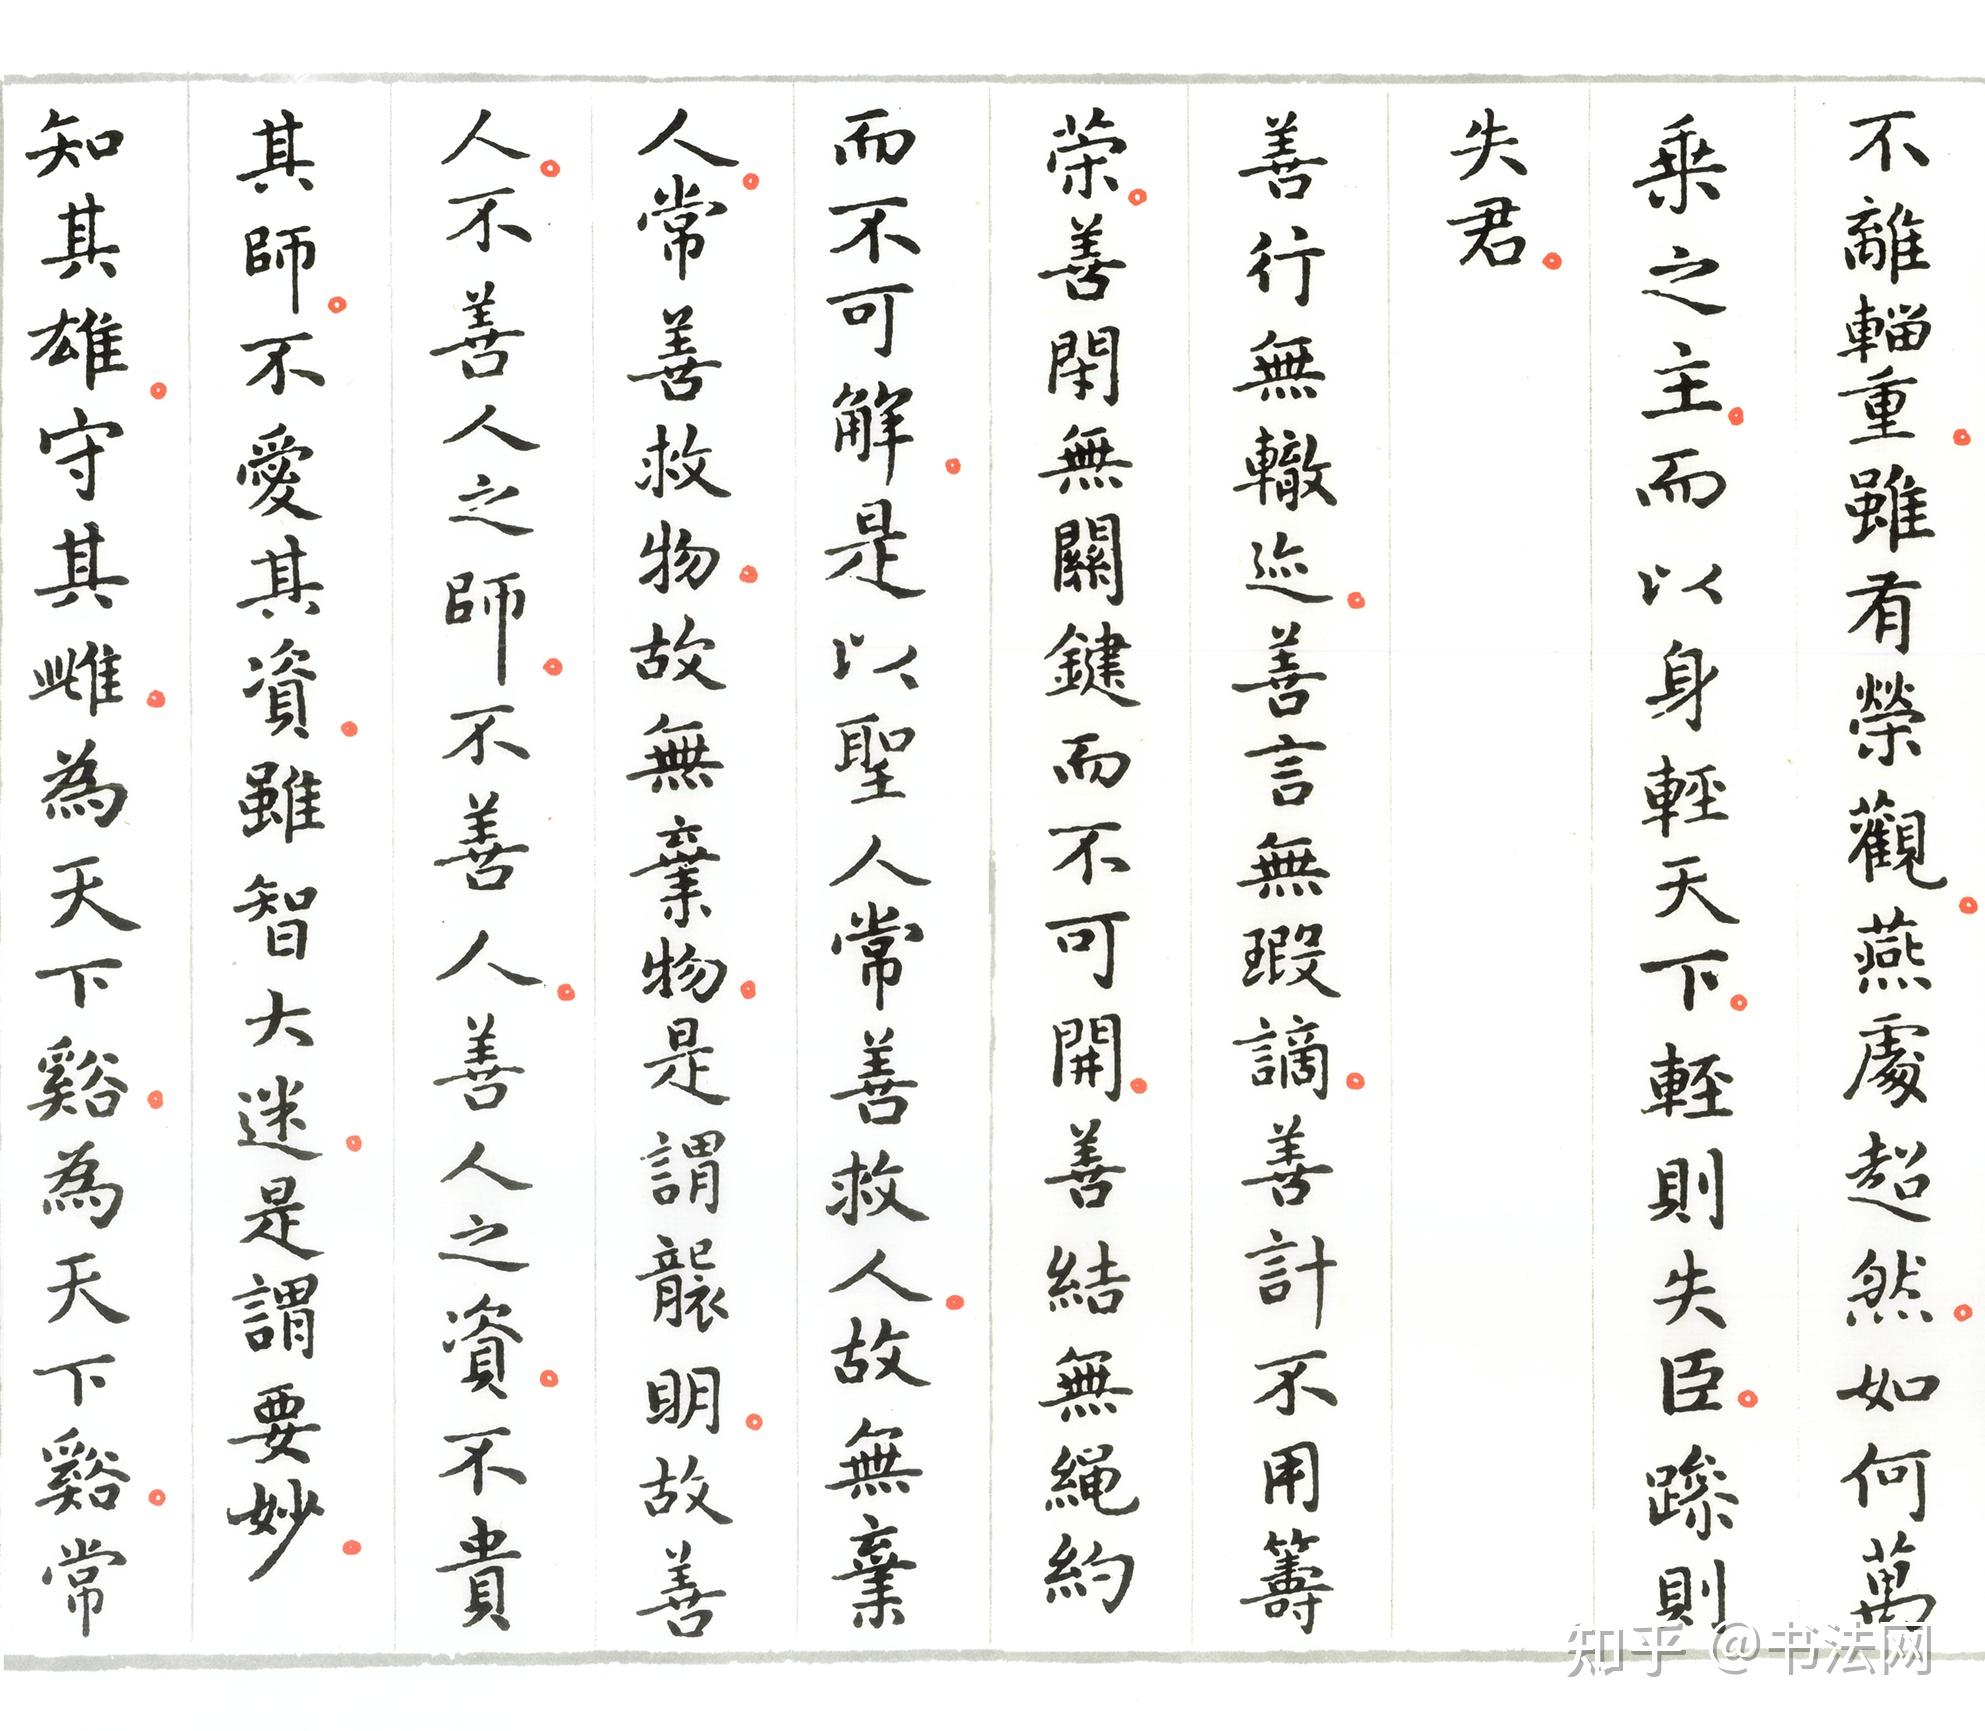 不離輜重雖有榮觀燕處超然如何萬
乘之主而以身輕天下輕則失臣躁則
失君
善行無轍迹善言無瑕謫善計不用籌
策善閉無關鍵而不可開善結無繩約
而不可解是以聖人常善救人故無棄
人常善救物故無棄物是謂襲明故善
人不善人之師不善人善人之資不貴
其師不愛其資雖智大迷是謂要妙
知其雄守其雌為天下谿為天下谿常
知乎 @书法网